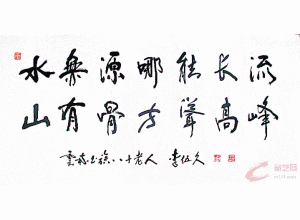 水無源哪能长流
山有骨方耸高峰
八十老人 李